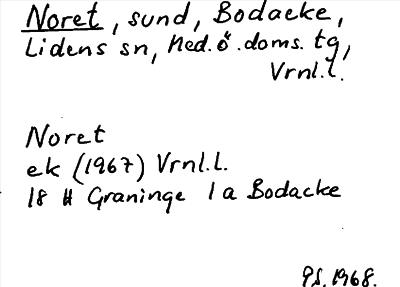 Noret, sund, Bodacke,
Lidens sn, Med. ö. doms. tg,
Vrnl. l.
Noret
ek (1967) Vrnl. l.
18 H Graninge 1 a Bodacke
PS. 1968.